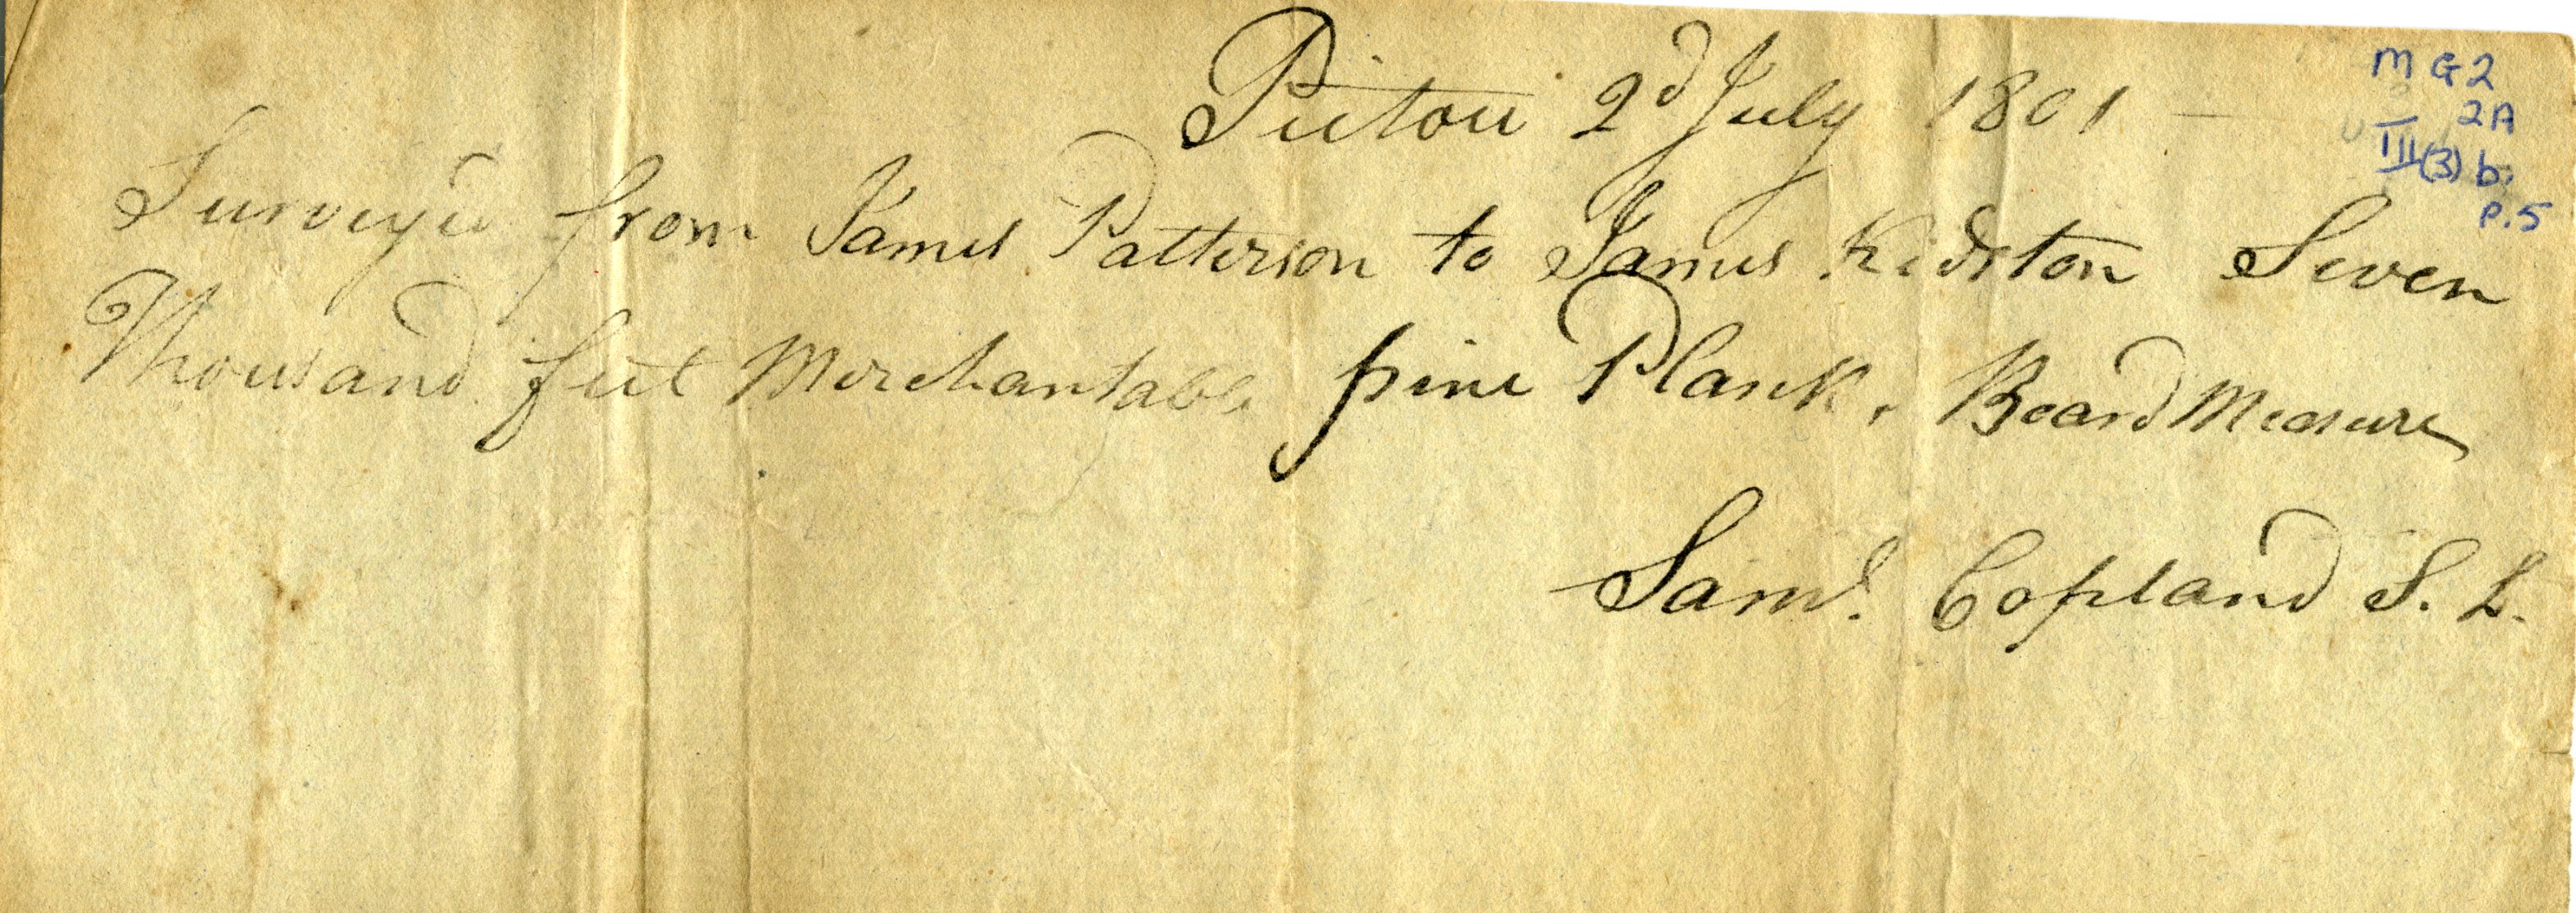 Pictou 2d July 1801 —
Survey'd from James Patterson to James Kidston Seven
Thousand feet Merchantable pine Plank, Board Measure
Saml. Copland S. L.
M G 2
2A
III(3) b.
P. 5